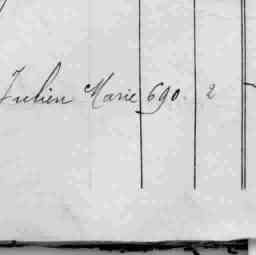 Julien Marie 690. 2